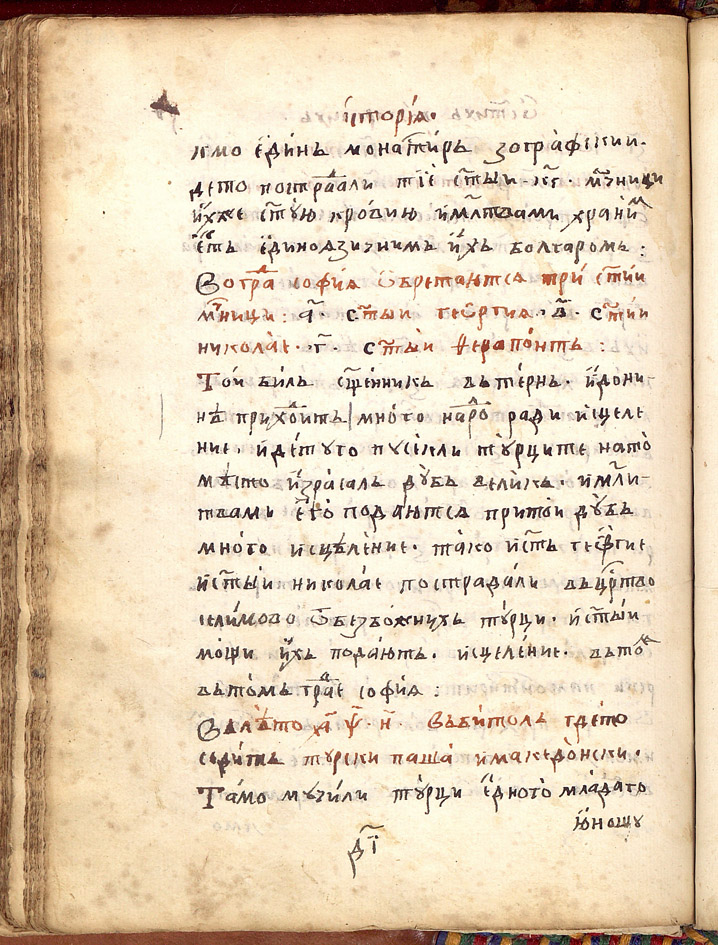 їсторїѧ·
кмо є҆ди́нь мѡнасти́рь зогра́фскии·
дето пострⷣали тїе ст҃ыи · к҃г· мч҃ници
и҆хже ст҃ую кровию и҆ мл҃твами храниⷨ
є҆сть є҆диноѧзичнимь и҆хь болгаромь :
Во граⷣ софиѧ ѡбретаютсѧ три ст҃ии
мч҃ници : а҃· ст҃ыи геѡ҆ргиѧ · в҃· ст҃ии
николае · г҃· ст҃ыи ѳерапонть :
Той биль сщ҃енникь вь тернь · и҆ дони-
нѣ прихоⷣить много нароⷣ ради исцеле
ние · и҆ де го посекли турците на то
мѣсто и҆зрасаль дубь великь · и҆ мл҃и-
твами є҆го подаютсѧ при той дубь
много исцѣление · тако и ст҃ь геѡргие
и ст҃ыи николае пострадали вь црⷭ҇тво
селимово ѿ безбожнихь турци · и ст҃ыи
мощи и҆хь подають · исцеление · вь то
вь томь граⷣе софиѧ :
Вь лѣто ҂а҃ ѱ҃· н҃· вь битоль гдето
седить турски паша и македонски ·
Тамо мучили турци є҆дного младаго
ю҆ношу
д҃ї